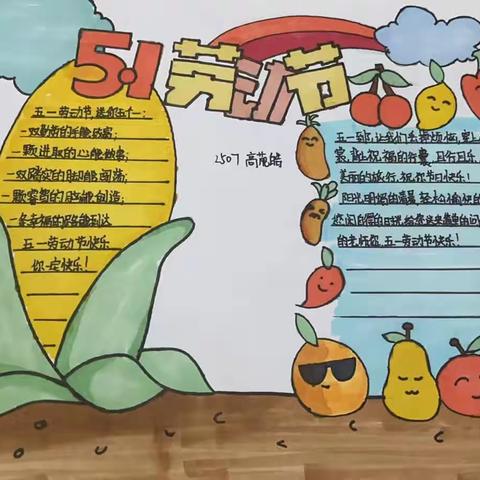 5·1 劳动节
五一劳动节,送你五个一:
一双勤劳的手能致富;
一颗进取的心能做事;
一双踏实的脚能闯荡;
一颗睿智的脑能创造;
一条幸福的路能到达
五一劳动节快乐
你一定快乐!
2507 高
五一到,让我们丢掉烦恼,穿上
裳,背起祝福的行囊,且行且乐,
美丽的旅行,祝你节日快乐!
阳光明媚的清晨,轻松愉快的
悠闲自得的日子,给您送来的问
的老师您,五一劳动节快乐!